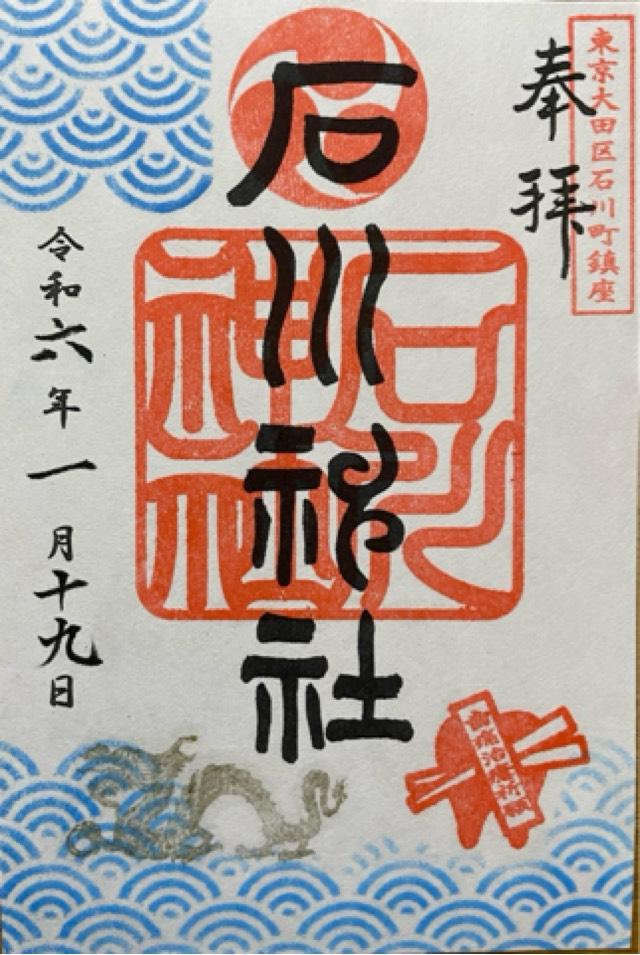 東京大田区石川町鎮座
奉拝
石川神社
石川
神社
令和六年一月十九日
歯痛治癒祈願